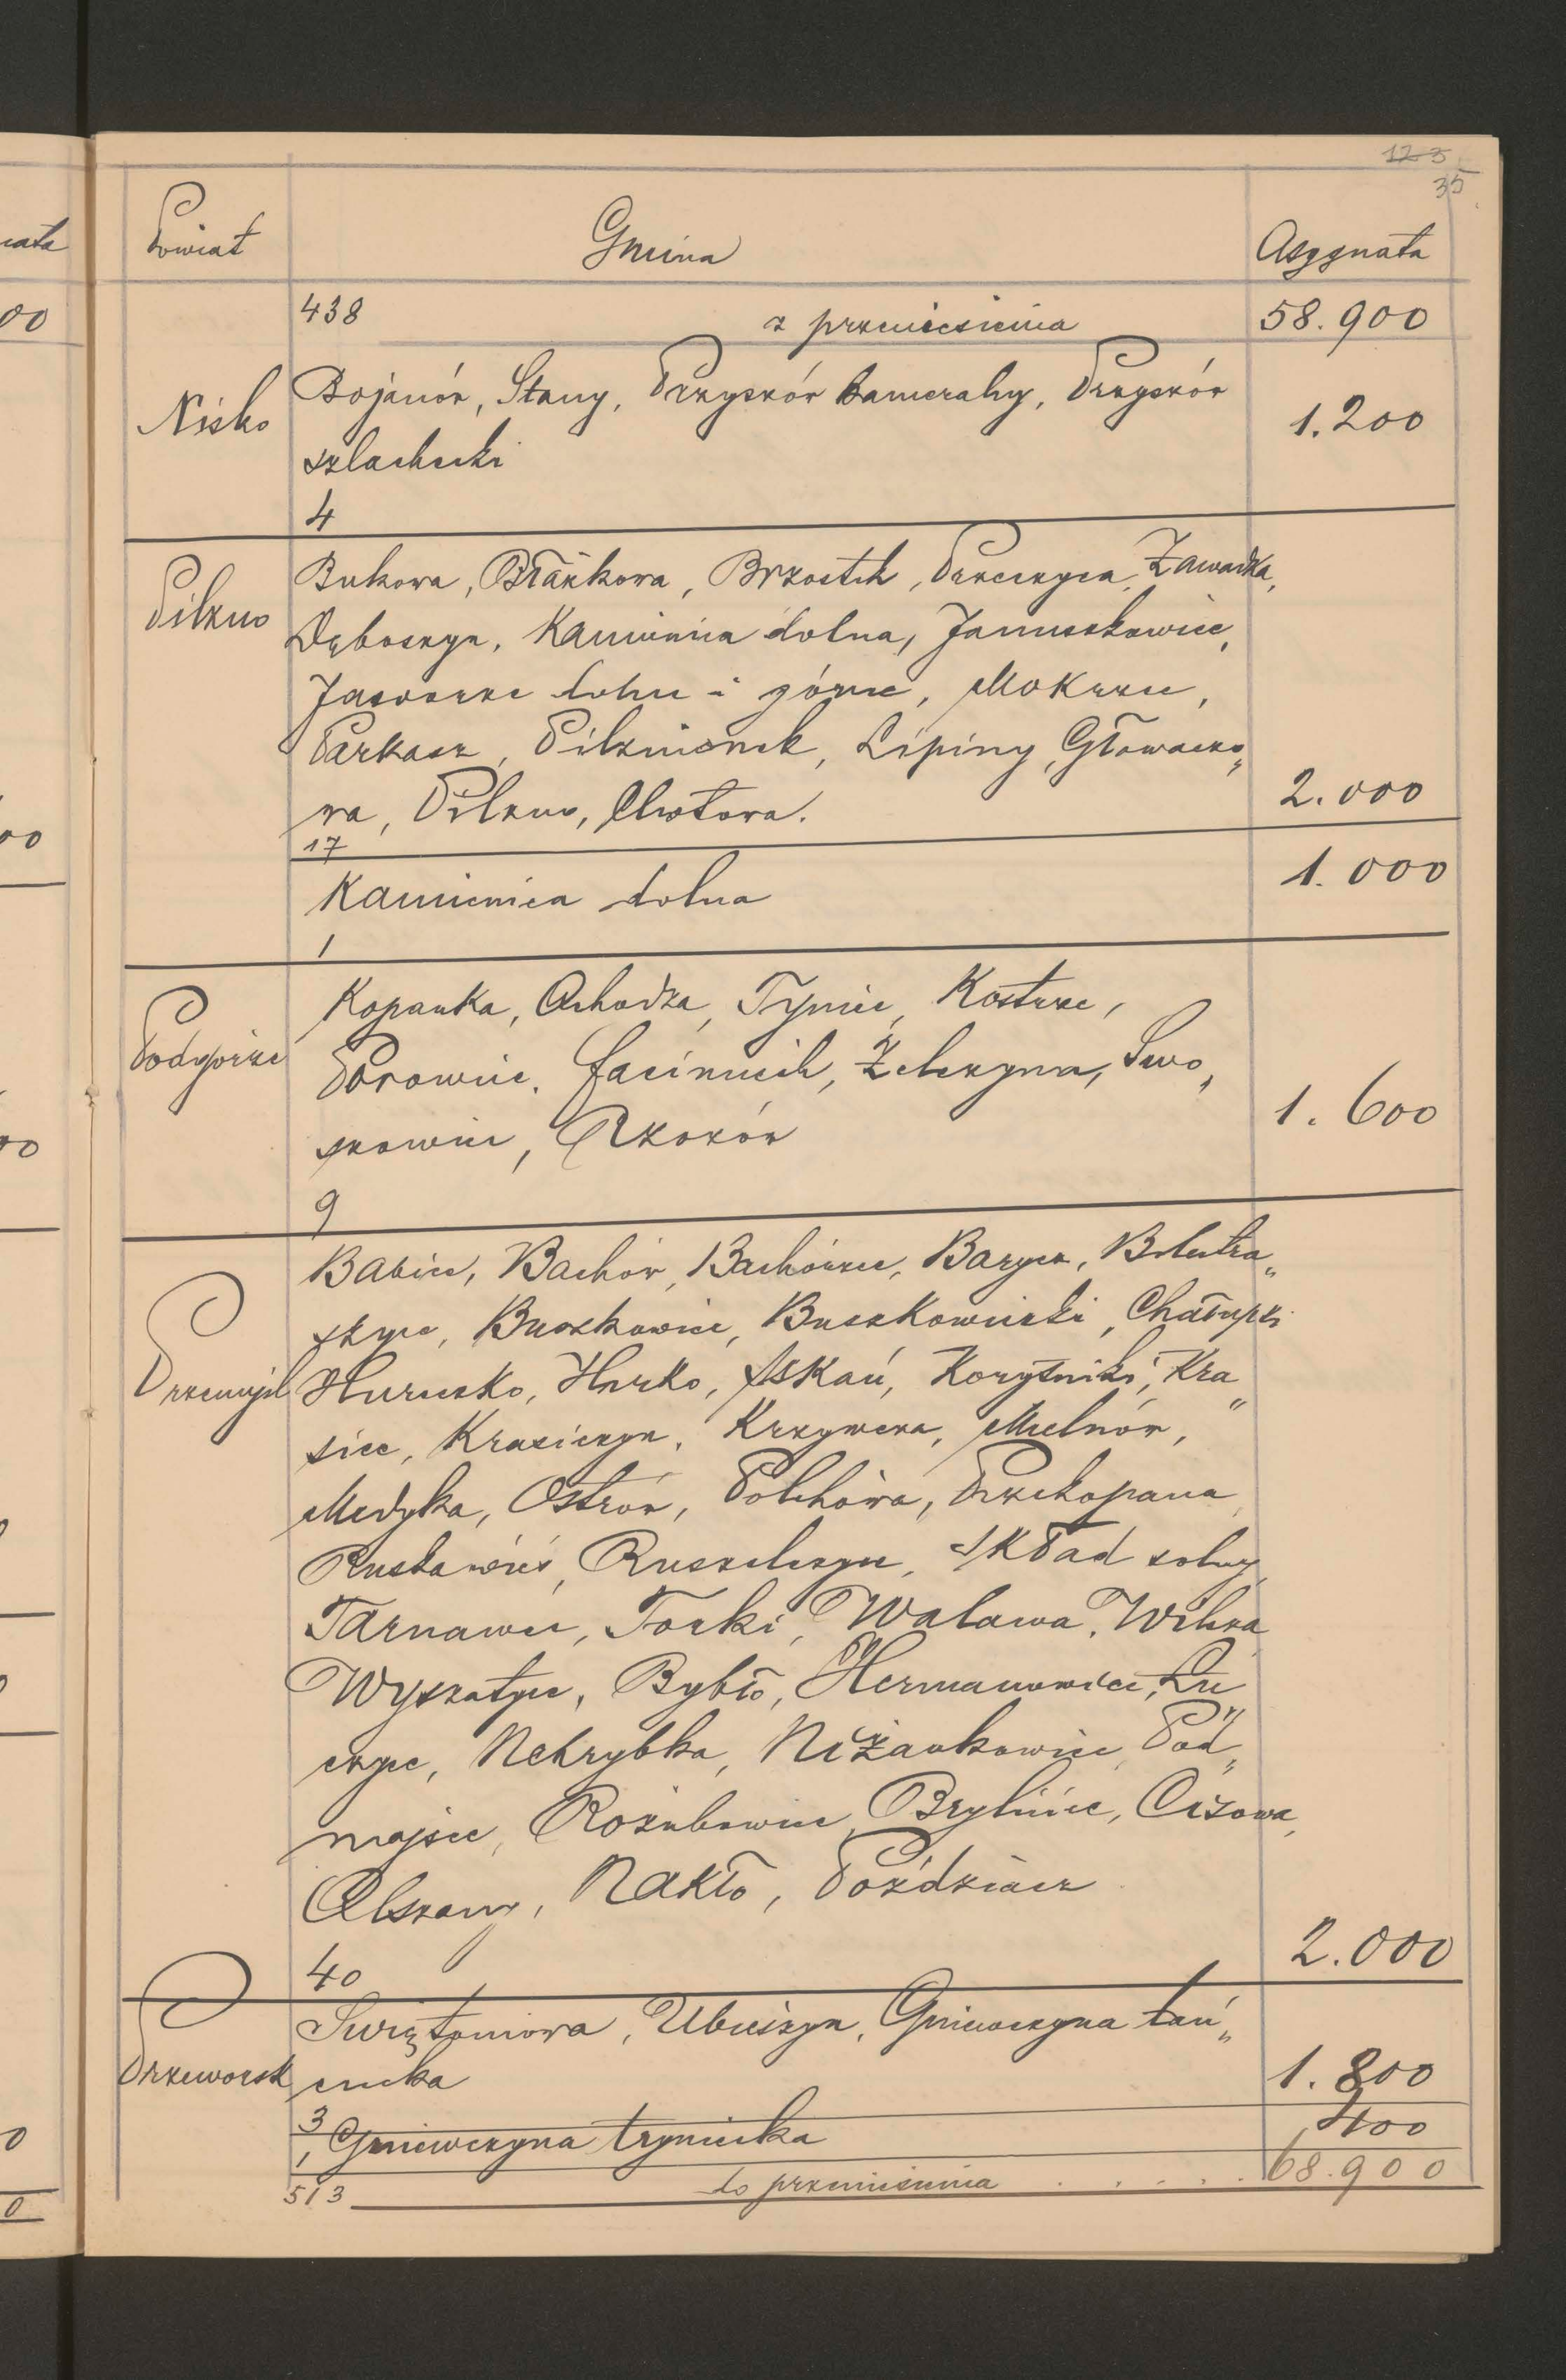 123
35
Powiat Gmina Asygnata
438 z przeniesienia 58.900
Nisko Bojanów, Stany, Przyszów kameralny, Przyszów 1.200
szlachecki
4
Pilzno Bukowa, Błażkowa, Brzostek, Przeczyca, Zawadka,
Dęboszyn, Kamienica dolna, Januszkowice,
Jaworze dolne i górne, Mokrzec,
Parkosz, Pilznionek, Lipiny, Głowaczo„
wa, Pilzno, Chotowa. 2.000
17
Kamienica dolna 1.000
1
Podgórze Kopanka, Ochodza, Tyniec, Kostrze,
Borowice, facimiech, Zelczyna, Swo„
szowice, Rzozów 1.600
9
Przemyśl Babice, Bachów, Bachórzec, Barycz, Bolestra„
szyce, Buszkowice, Buszkowiczki, Chałupki
Hureczko, Hurko, Iskań, Korytniki, Kra„
sice, Krasiczyn, Krzywcza, Mielnów,
Medyka, Ostrów, Bolchowa, Przekopana,
Ruskawieś, Ruszelczyce, Skład solny,
Tarnawce, Torki, Walawa, Wilcza
Wyszatyce, Bybło, Hermanowice, Łu„
czyce, Nehrybka, Niżankowice, Pod„
mojsce, Rożubowice, Brylińce, Cisowa,
Olszany, Nakło, Poździacz
2.000
40
Przeworsk Swiętoniowa, Ubieszyn, Gniewczyna łań„
cucka 1.800
3
1 Gniewczyna tryniecka 400
513 do przeniesienia . . . . . 68.900